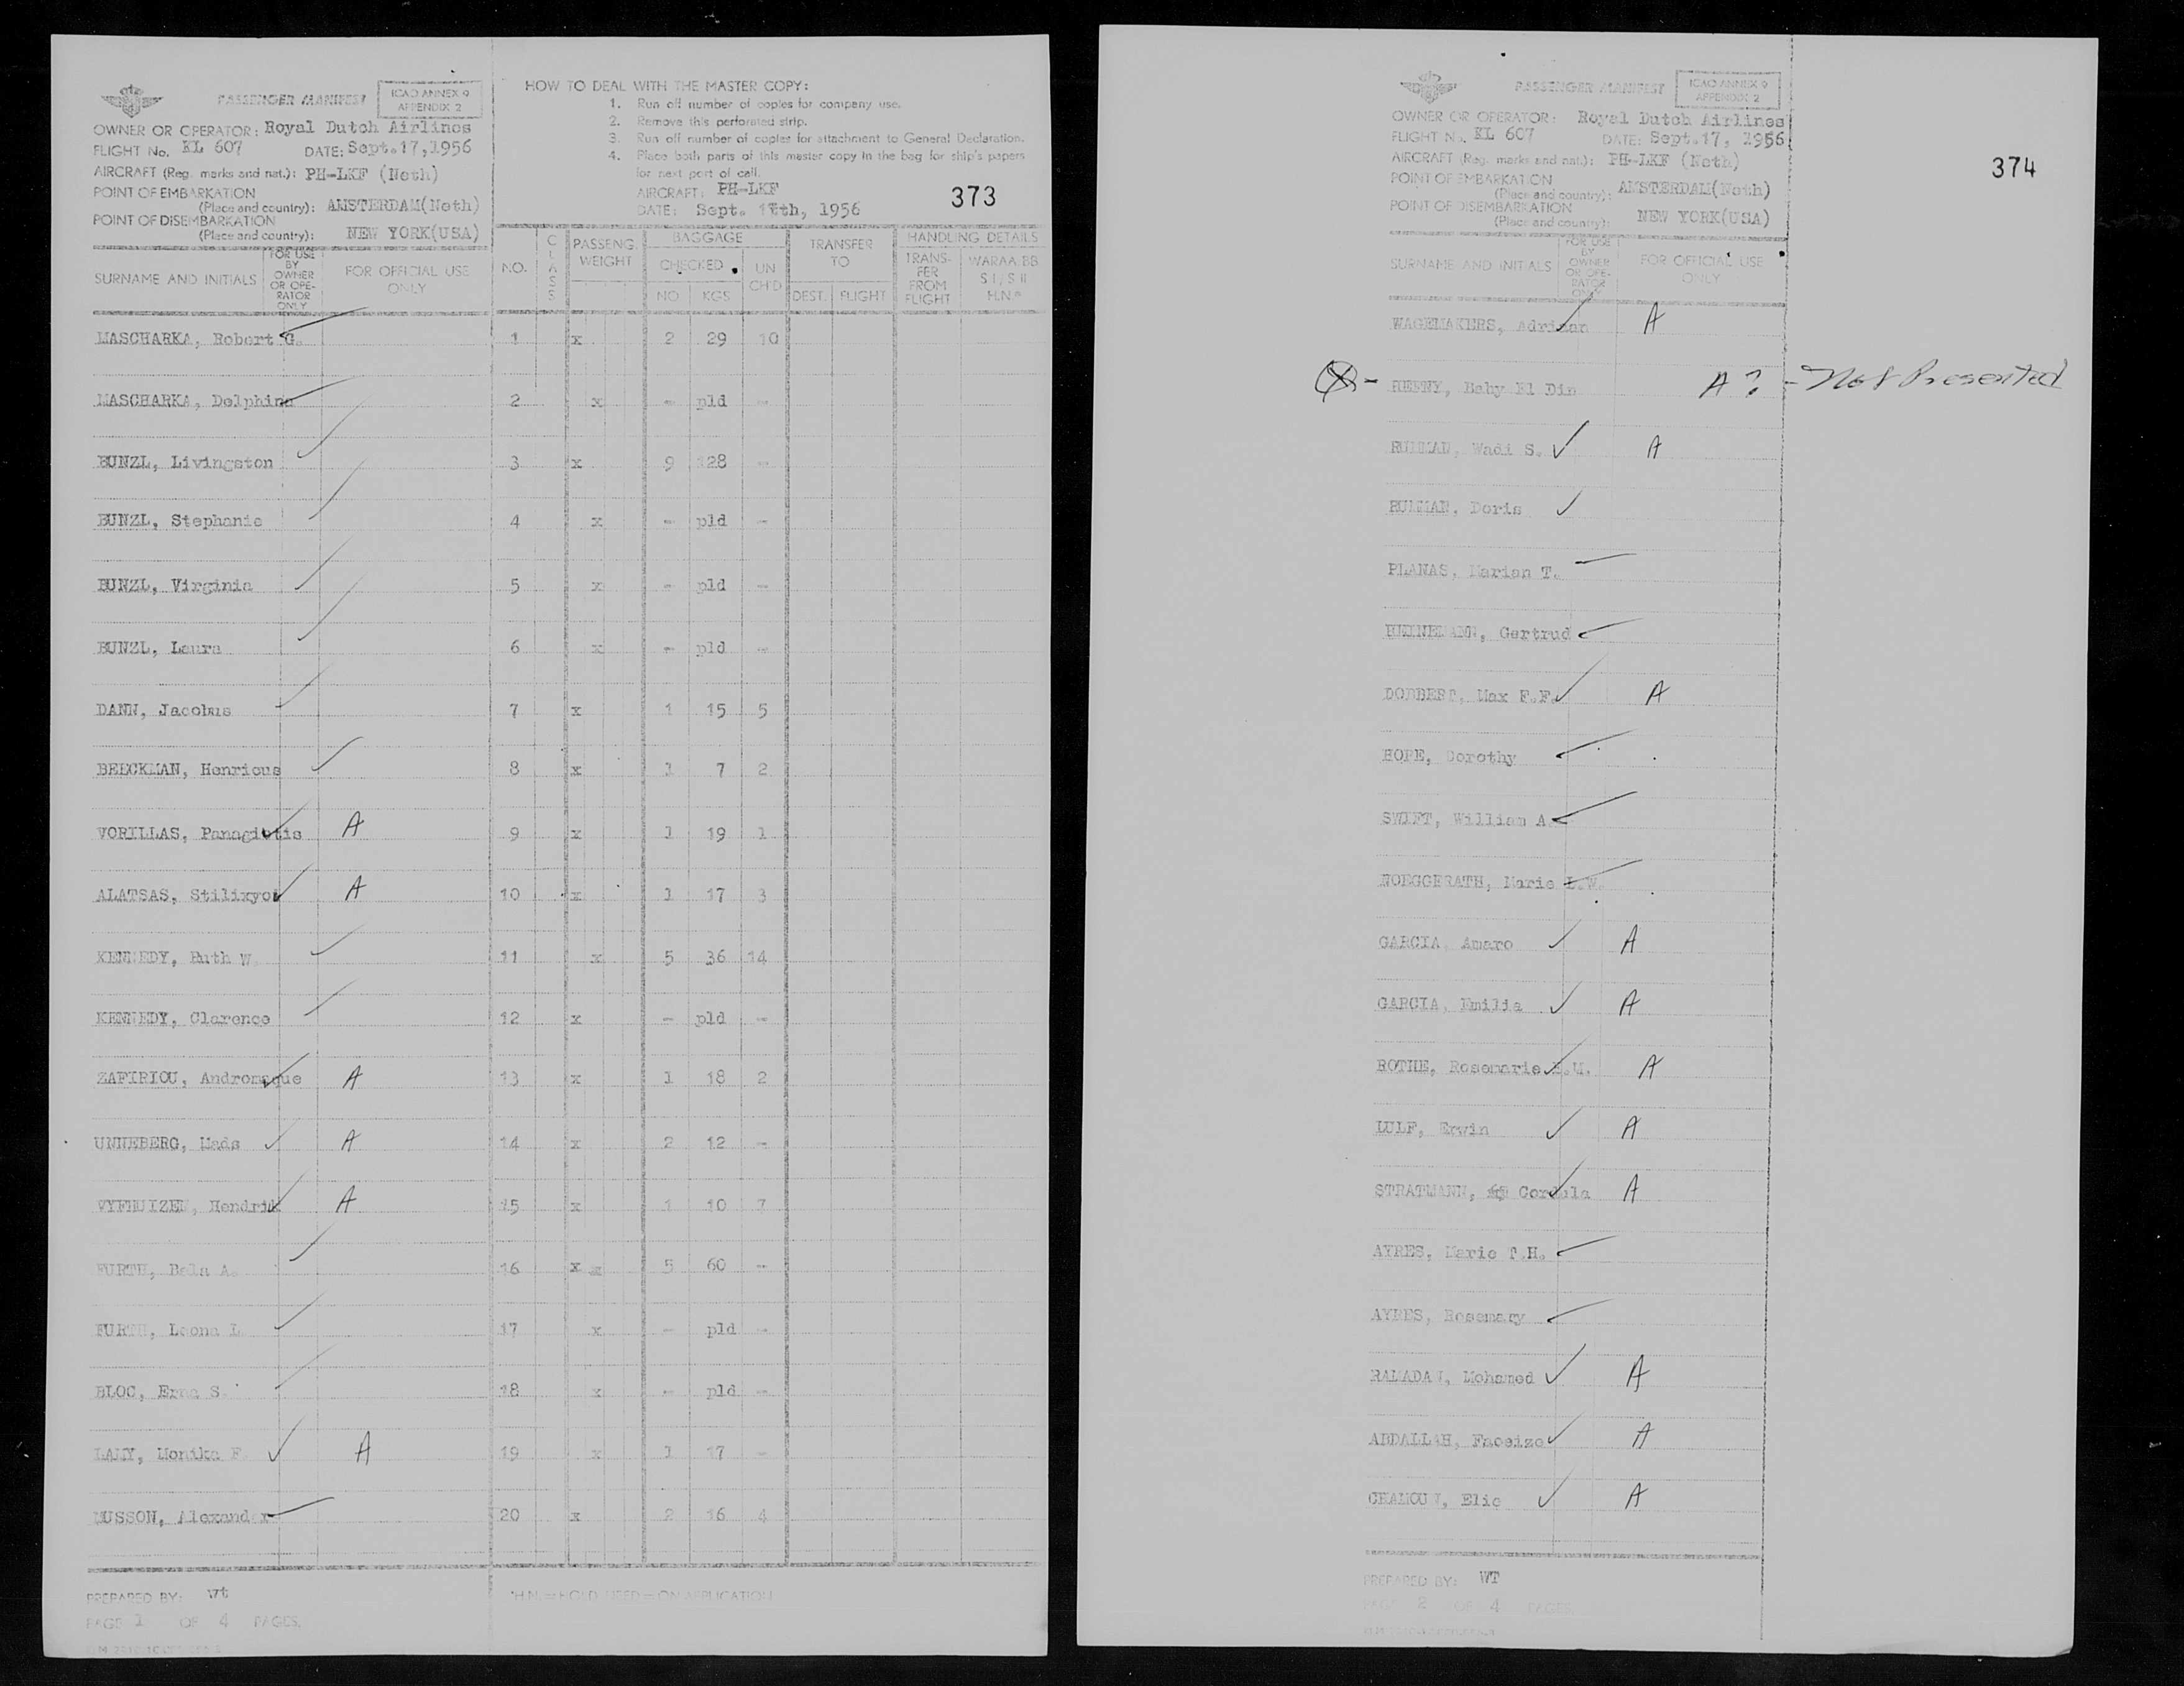 PASSENGER MANIFEST
ICAO ANNEX 9
APPENDIX 2
OWNER OR OPERATOR: Royal Dutch Airlines
FLIGHT No. KL 607 DATE: Sept.17,1956
AIRCRAFT (Reg. marks and nat.): PH-LKF (Neth)
POINT OF EMBARKATION
(Place and country): AMSTERDAM(Neth)
POINT OF DISEMBARKATION
(Place and country): NEW YORK(USA)
HOW TO DEAL WITH THE MASTER COPY:
1. Run off number of copies for company use.
2. Remove this perforated strip.
3. Run off number of copies for attachment to General Declaration.
4. Place both parts of this master copy in the bag for ship's papers
for next port of call.
AIRCRAFT: PH-LKF
DATE: Sept. 17th, 1956
373
SURNAME AND INITIALS
FOR USE BY OWNER OR OPE-RATOR ONLY
FOR OFFICIAL USE ONLY
NO. CLASS PASSENG. WEIGHT BAGGAGE CHECKED NO KGS UN CH'D TRANSFER TO DEST. FLIGHT HANDLING DETAILS TRANS-FER FROM FLIGHT WARAA.BB. S I, S II H.N*
MASCHARKA, Robert G. 1 x 2 29 10
MASCHARKA, Delphine 2 x - pld -
BUNZL, Livingston 3 x 9 128 -
BUNZL, Stephanie 4 x - pld -
BUNZL, Virginia 5 x - pld -
BUNZL, Laura 6 x - pld -
DANN, Jacobus 7 x 1 15 5
BEECKMAN, Henricus 8 x 1 7 2
VORILLAS, Panagiotis A 9 x 1 19 1
ALATSAS, A 10 x 1 17 3
KENNEDY, Ruth W. 11 x 5 36 14
KENNEDY, Clarence 12 x - pld -
ZAFIRIOU, Andromaque A 13 x 1 18 2
UNNEBERG, Mads A 14 x 2 12 -
VYFHUIZEN, Hendrik A 15 x 1 10 7
FURTH, Bela A. 16 x x 5 60 -
FURTH, Leona L. 17 x - pld -
BLOC, Erna S. 18 x - pld -
LAMY, Monika F. A 19 x 1 17 -
MUSSON, Alexander 20 x 2 16 4
PREPARED BY: wt
*H.N. = HOLD NEED = ON APPLICATION
PAGE 1 OF 4 PAGES.
PASSENGER MANIFEST
ICAO ANNEX 9
APPENDIX 2
OWNER OR OPERATOR: Royal Dutch Airlines
FLIGHT No. KL 607 DATE: Sept.17, 1956
AIRCRAFT (Reg. marks and nat.): PH-LKF (Neth)
POINT OF EMBARKATION
(Place and country): AMSTERDAM(Neth)
POINT OF DISEMBARKATION
(Place and country): NEW YORK(USA)
374
SURNAME AND INITIALS
FOR USE BY OWNER OR OPE-RATOR ONLY
FOR OFFICIAL USE ONLY
WAGEMAKERS, Adriaan A
Baby El Din A ? - Not Presented
RUMMAN, Wadi S. A
RUMMAN, Doris
PLANAS, Marian T.
HEINEMANN, Gertrud
DOBBERT, Max F.F. A
HOPE, Dorothy
SWIFT, William A.
NOEGGERATH, Marie L.W.
GARCIA, Amaro A
GARCIA, Emilia A
ROTHE, Rosemarie M. A
LULF, Erwin A
STRATMANN, Cordula A
AYRES, Marie T.H.
AYRES, Rosemary
RAMADAN, Mohamed A
ABDALLAH, Faceize A
CHAMOUN, Elie A
PREPARED BY: WT
PAGE 2 OF 4 PAGES.